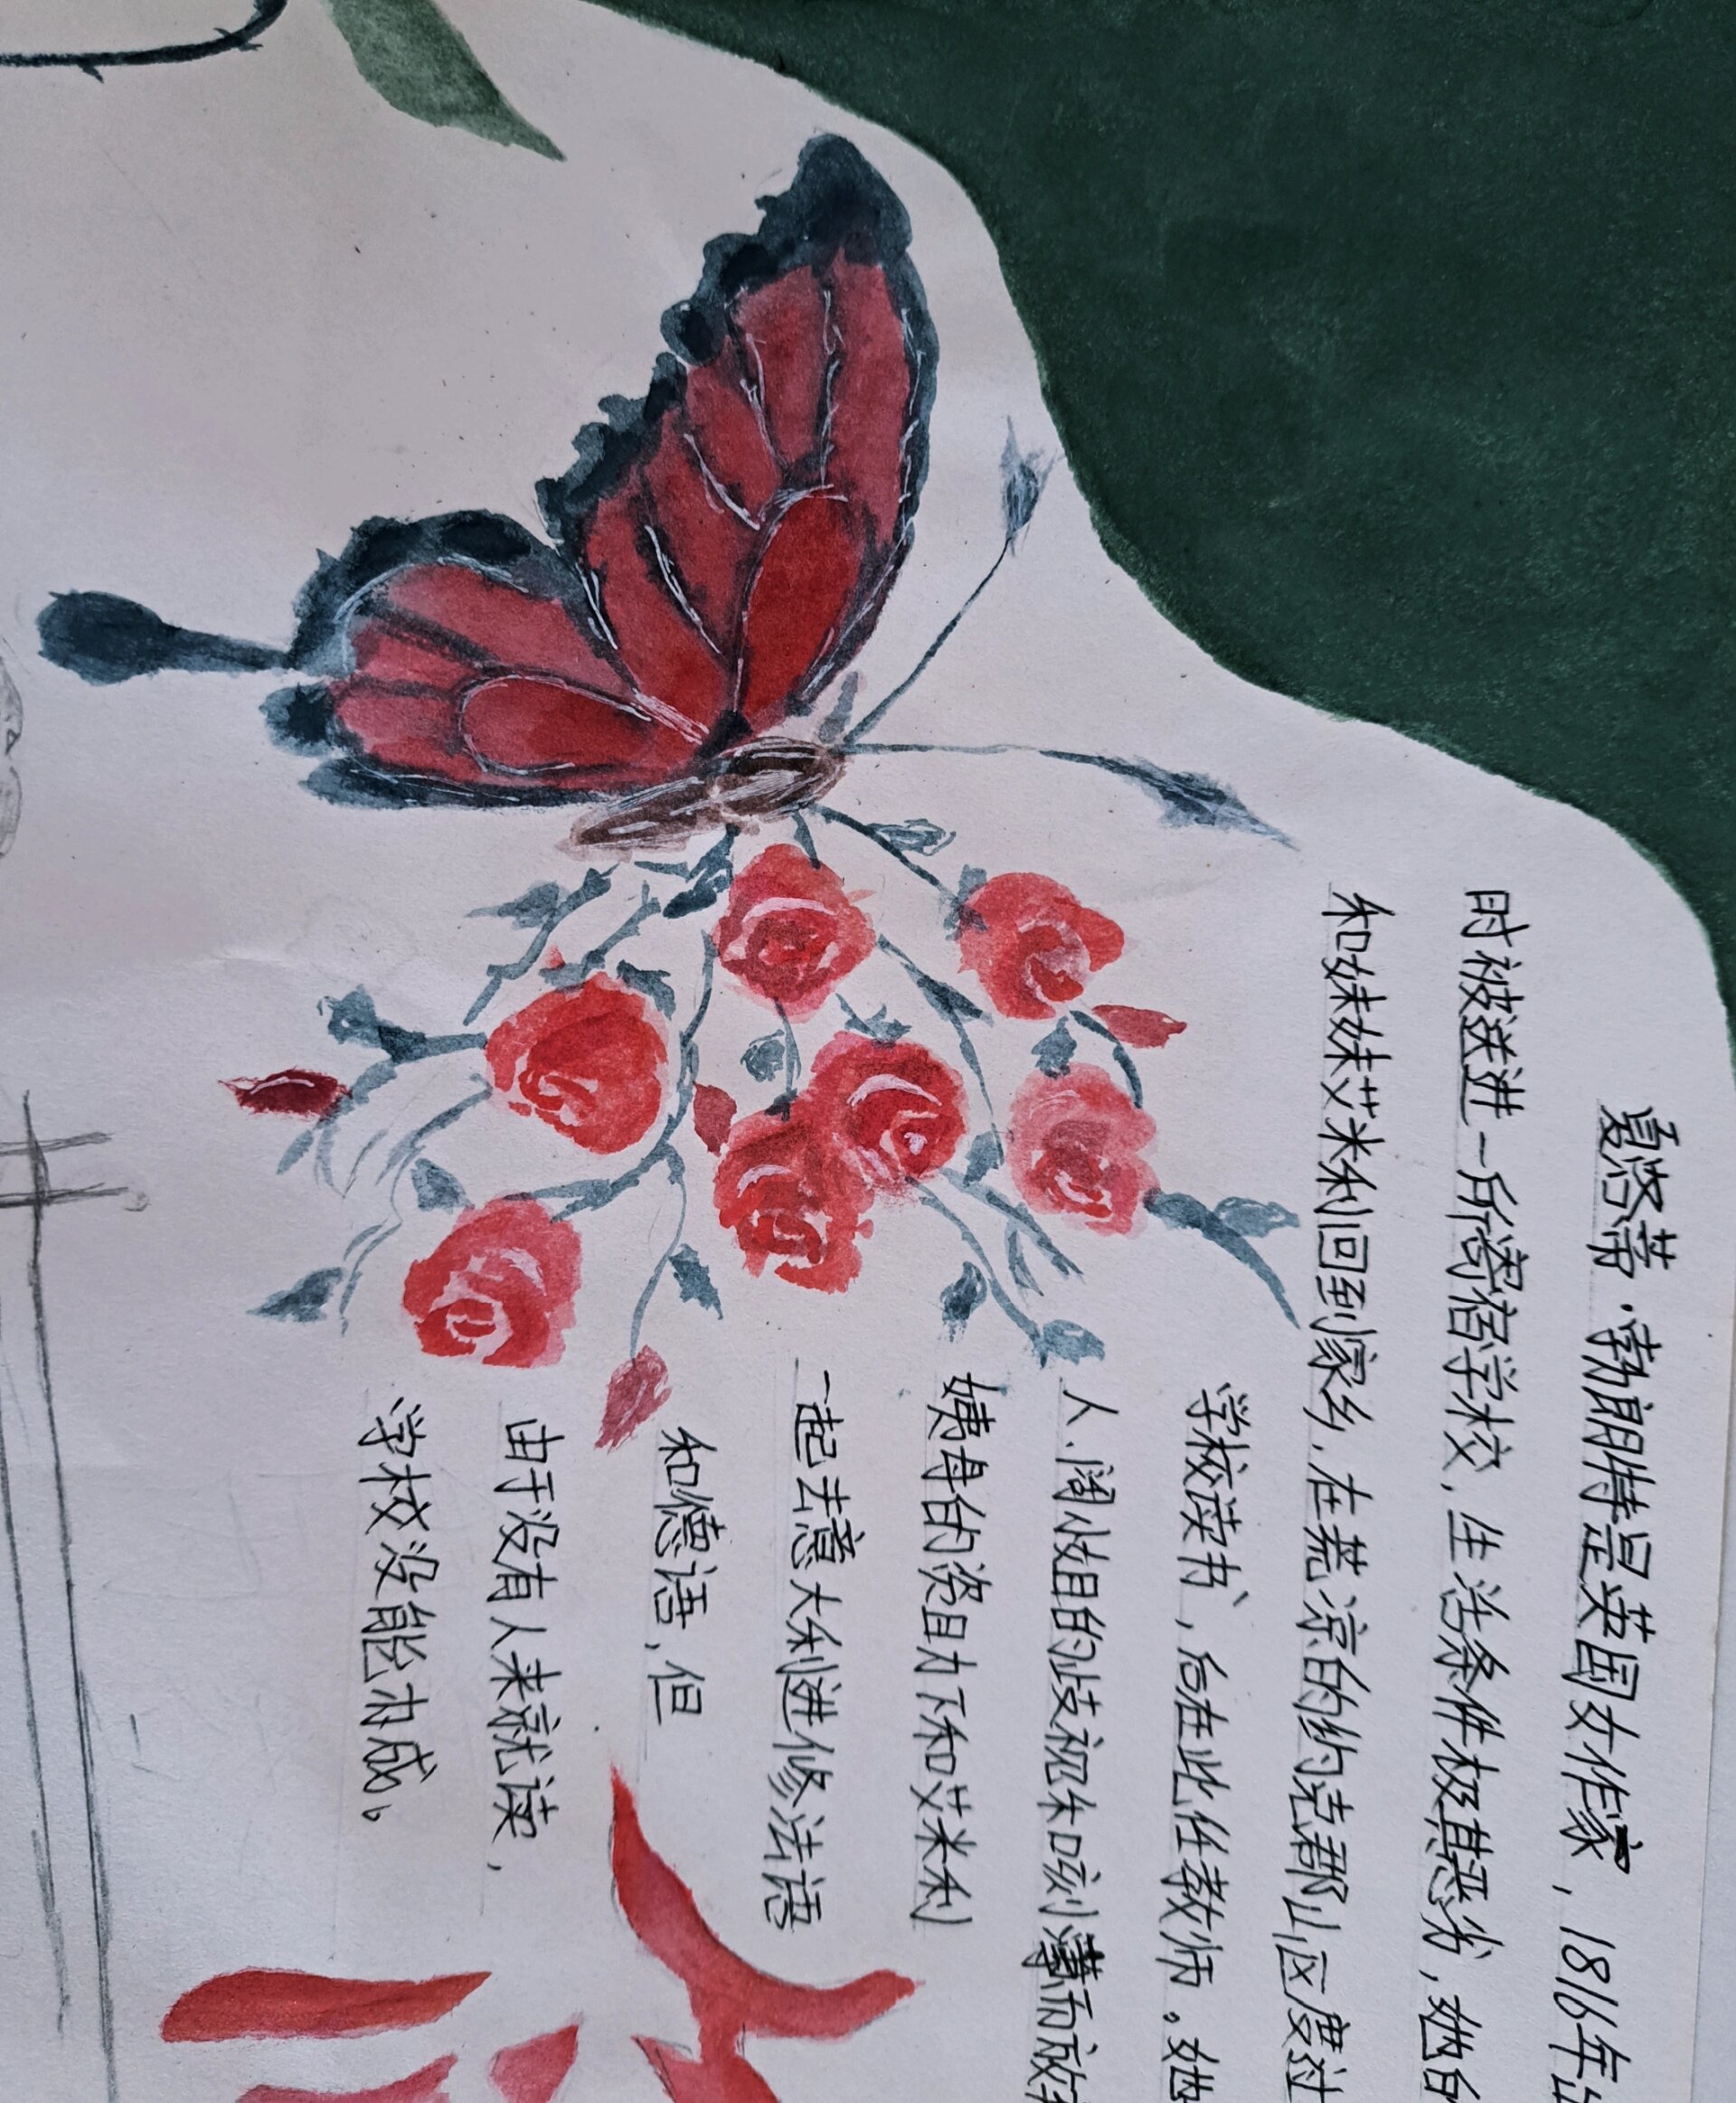 夏洛蒂·勃朗特是英国女作家，1816年出
时被送进一所寄宿学校，生活条件极其恶劣，她的
和妹妹艾米利回到家乡，在荒凉的约克郡山区度过
学校读书，后在此任教师。她
人、阔小姐的歧视和刻薄而放弃
姨母的资助下和艾米利
一起去意大利进修法语
和德语，但
由于没有人来就读，
学校没能办成。